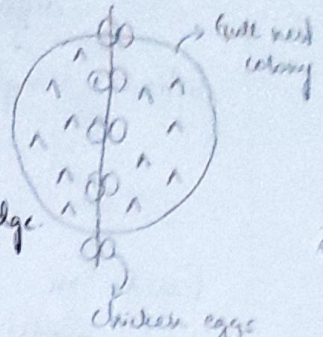 Gull nest
colony
dge.
chicken eggs